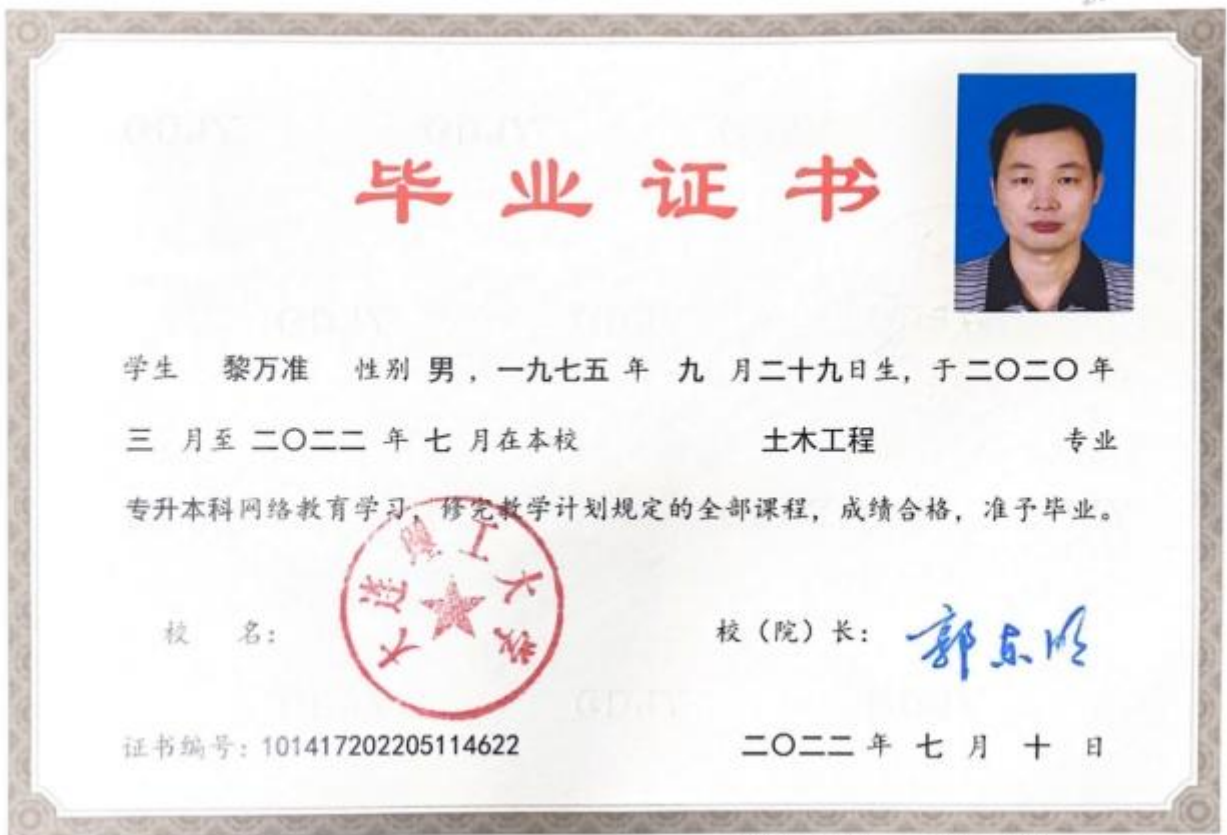 毕业证书
学生 黎万准 性别 男，一九七五 年 九 月二十九日生，于二〇二〇年
三 月至 二〇二二 年 七 月在本校 土木工程 专业
专升本科网络教育学习，修完教学计划规定的全部课程，成绩合格，准予毕业。
大连理工大学
校 名： 校（院）长： 郭东明
证书编号：101417202205114622 二〇二二 年 七 月 十 日